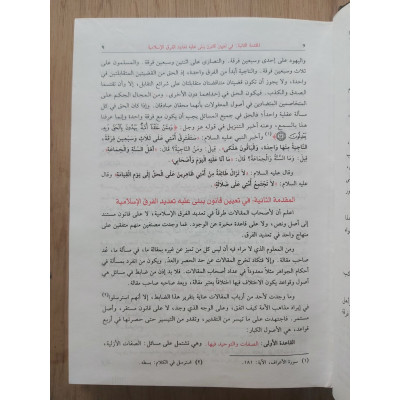 المقدمة الثانية: في تعيين قانون يبنى عليه تعديد الفرق الإسلامية
٩
واليهود على إحدى وسبعين فرقة. والنصارى على اثنتين وسبعين فرقة. والمسلمون على
ثلاث وسبعين فرقة. والناجية أبداً من الفرق واحدة، إذ الحق من القضيتين المتقابلتين في
واحدة، ولا يجوز أن يكون قضيتان متناقضتان متقابلتان على شرائع التقابل، إلا وأن تقتسما
الصدق والكذب. فيكون الحق في إحداهما دون الأخرى. ومن المحال الحكم على
المتخاصمين المتضادين في أصول المعقولات بأنهما محقان صادقان. وإذا كان الحق في كل
مسألة عقلية واحداً، فالحق في جميع المسائل يجب أن يكون مع فرقة واحدة. وإنما عرفنا
هذا بالسمع، وعنه أخبر التنزيل في قوله عز وجل: ﴿وَمِمَّنْ خَلَقْنَا أُمَّةٌ يَهْدُونَ بِالْحَقِّ وَبِهِ
يَعْدِلُونَ﴾(١) وأخبر النبي عليه السلام: «ستفترق أمتي على ثلاث وسبعين فرقة،
الناجية منها واحدة، والباقون هلكى. قيل: ومن الناجية؟ قال: أهل السنة والجماعة.
قيل: وما السنة والجماعة؟ قال: ما أنا عليه اليوم وأصحابي.
وقال عليه السلام: «لا تزال طائفة من أمتي ظاهرين على الحق إلى يوم القيامة. وقال
عليه السلام: لا تجتمع أمتي على ضلالة.
المقدمة الثانية: في تعيين قانون يبنى عليه تعديد الفرق الإسلامية
اعلم أن لأصحاب المقالات طرقاً في تعديد الفرق الإسلامية، لا على قانون مستند
إلى نص، ولا على قاعدة مخبرة عن الوجود. فما وجدت مصنفين منهم متفقين على
منهاج واحد في تعديد الفرق.
ومن المعلوم الذي لا مراء فيه أن ليس كل من تميز عن غيره بمقالة ما، في مسألة ما، عد
صاحب مقالة. وإلا فتكاد تخرج المقالات عن حد الحصر والعد. ويكون من انفرد بمسألة في
أحكام الجواهر مثلاً معدوداً في عداد أصحاب المقالات. فلا بد إذن من ضابط في مسائل هي
أصول وقواعد يكون الاختلاف فيها اختلافاً يعتبر مقالة، ويعد صاحبه صاحب مقالة.
وما وجدت لأحد من أرباب المقالات عناية بتقرير هذا الضابط، إلا أنهم استرسلوا(٢)
في إيراد مذاهب الأمة كيف اتفق، وعلى الوجه الذي وجد، لا على قانون مستقر، وأصل
مستمر. فاجتهدت على ما تيسر من التقدير، وتقدر من التيسير حتى حصرتها في أربع
قواعد، هي الأصول الكبار:
القاعدة الأولى: الصفات والتوحيد فيها. وهي تشتمل على مسائل: الصفات الأزلية،
(١) سورة الأعراف، الآية: ١٨١.
(٢) استرسل في الكلام: بسطه.